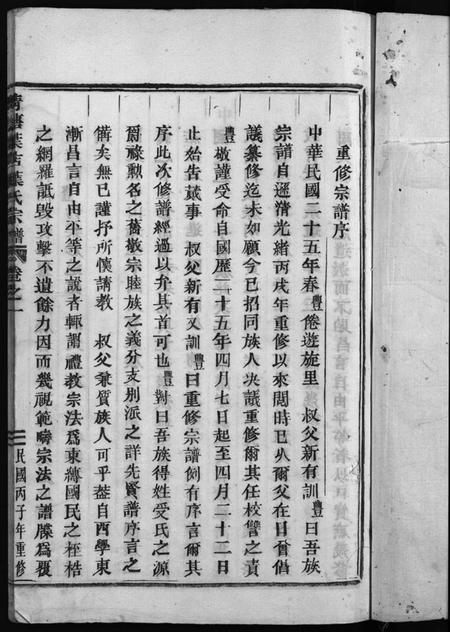 重修宗譜序
中華民國二十五年春豐倦遊旋里　叔父新有訓豐曰吾族
宗譜自遜清光緒丙戌年重修以來閱時已久爾父在日嘗倡
議纂修迄未如願今已招同族人決議重修爾其任校讐之責
豐敬謹受命自國歷二十五年四月七日起至四月二十二日
止始告蕆事　叔父新有又訓豐曰重修宗譜例有序言爾其
序此次修譜經過以介其首可也豐對曰吾族得姓受氏之源
爵祿勲名之舊敬宗睦族之義分支別派之詳先賢譜序言之
備矣無已謹抒所懷請教　叔父兼質族人可乎蓋自西學東
漸昌言自由平等之說者輒謂禮教宗法爲束縛國民之桎梏
之網羅詆毀攻擊不遺餘力因而蔑視範疇宗法之譜牒爲覆
葉氏宗譜　卷之一
民國丙子年重修